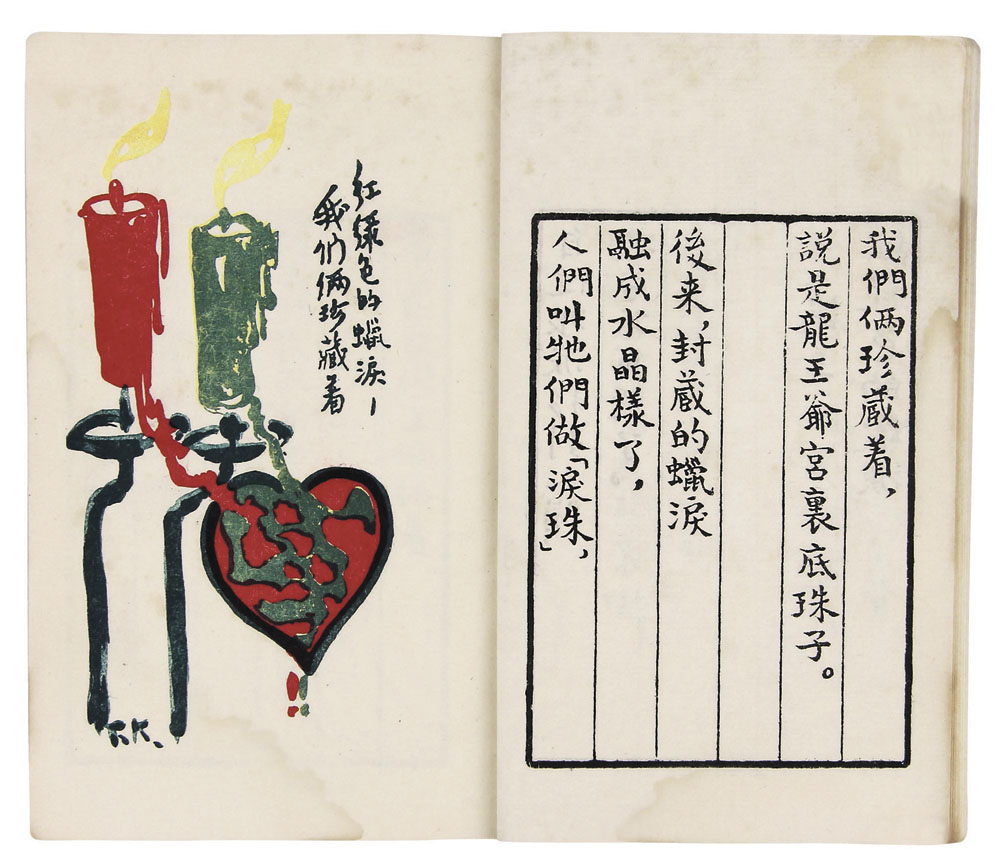 我們倆珍蔵着，
說是龍王爺宮裏底珠子。
後来，封蔵的蠟淚
融成水晶樣了，
人們叫牠們做「淚珠」，
红綠色的蠟淚—
我们倆珍藏着
T.K.